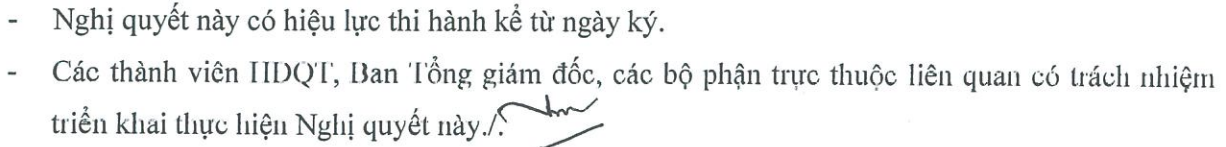 - Nghị quyết này có hiệu lực thi hành kể từ ngày ký.
- Các thành viên HĐQT, Ban Tổng giám đốc, các bộ phận trực thuộc liên quan có trách nhiệm
triển khai thực hiện Nghị quyết này./.